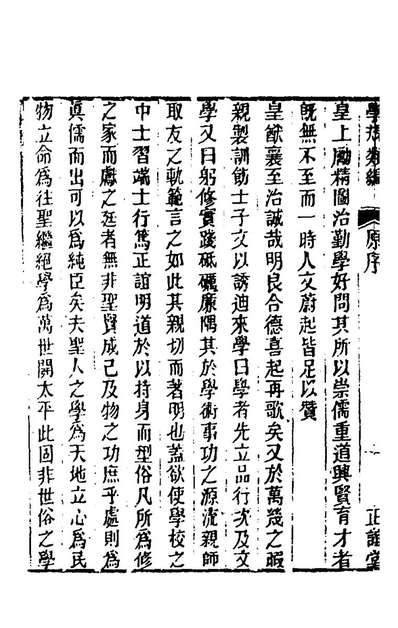 學規類編 原序 一 正誼堂
皇上勵精圖治勤學好問其所以崇儒重道興賢育才者
旣無不至而一時人文蔚起皆足以贊
皇猷襄至治誠哉明良合德喜起再歌矣又於萬幾之暇
親製訓飭士子文以誘迪來學曰學者先立品行次及文
學又曰躬修實踐砥礪廉隅其於學術事功之源流親師
取友之軌範言之如此其親切而著明也蓋欲使學校之
中士習端士行篤正誼明道於以持身而型俗凡所爲修
之家而獻之廷者無非聖賢成己及物之功庶乎處則爲
眞儒而出可以爲純臣矣夫聖人之學爲天地立心爲民
物立命爲往聖繼絕學爲萬世開太平此固非世俗之學